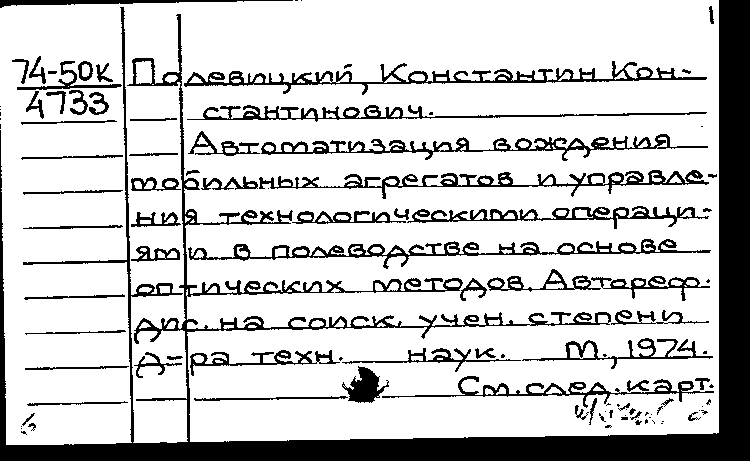 1
74-50к
4733
Полевицкий, Константин Кон-
стантинович.
Автоматизация вождения
мобильных агрегатов и управле-
ния технологическими операци-
ями в полеводстве на основе
оптических методов. Автореф.
дис. на соиск. учен. степени
д-ра техн. наук. М., 1974.
См. след. карт.
6